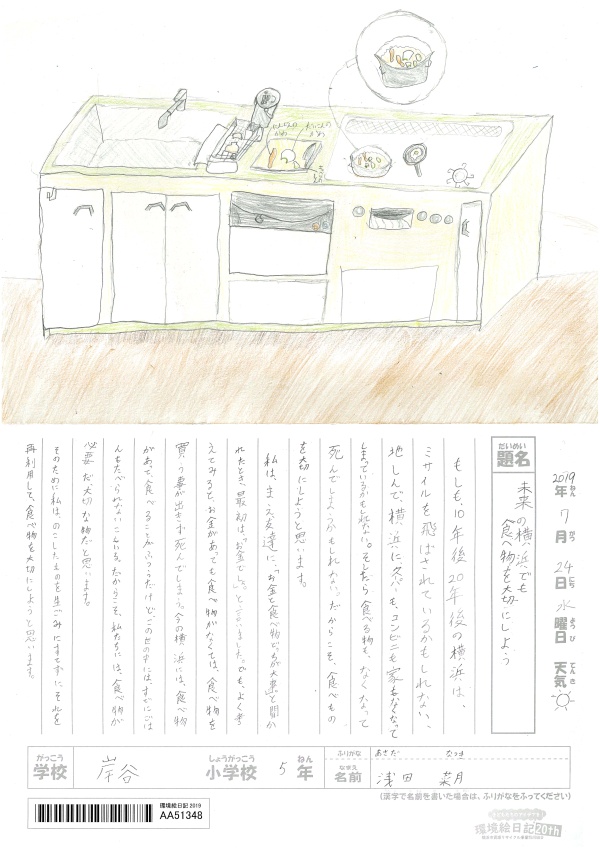 にんじんの
かわ
だいこんの
かわ
2019年ねん 7月がつ 24日にち 水曜日ようび 天気てんき
題名だいめい
未来の横浜でも
食べ物を大切にしよう
もしも10年後20年後の横浜は、
ミサイルを飛ばされているかもしれない、
地しんで、横浜にスーパーも、コンビニも家もなくなって
しまっているかもしれない。そしたら食べる物も、なくなって
死んでしまうかもしれない。だからこそ、食べもの
を大切にしようと思います。
私は、まえ友達に「お金と食べ物どっちが大事」と聞か
れたとき、最初は「お金でしょ。」と言いました。でも、よく考
えてみると、お金があっても食べ物がなくては、食べ物を
買う事が出きず死んでしまう。今の横浜には、食べ物
があって、食べることがふつうだけど、この世の中には、すぐにごは
んもたべられないこもいる。だからこそ、私たちには、食べ物が
必要だ大切な物だと思います。
そのために私は、のこしたものを生ごみにすてずに、それを
再利用して、食べ物を大切にしようと思います。
がっこう
学校
岸谷
しょうがっこう
小学校
5
ねん
年
ふりがな
あさだ なつき
なまえ
名前
浅田 菜月
(漢字で名前を書いた場合は、ふりがなをふってください)
環境絵日記 2019
AA51348
環境絵日記20th